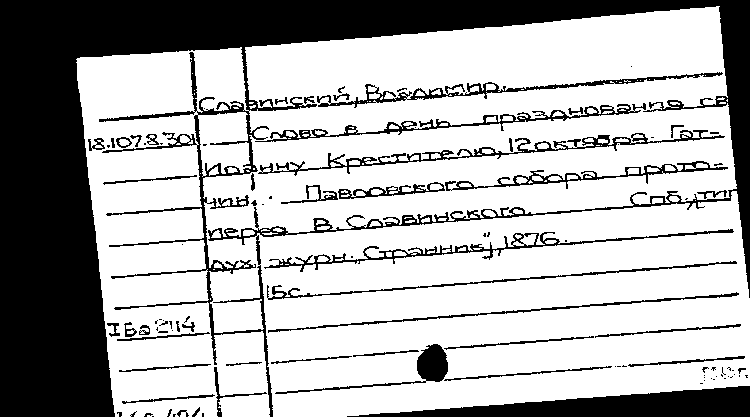 Славинский, Владимир.
18.107.8.301 Слово в день празднования св
Иоанну Крестителю, 12 октября. Гат-
чин. Павловского собора прото-
иерея В. Славинского. Спб., тип
дух. журн. „Странник", 1876.
15с.